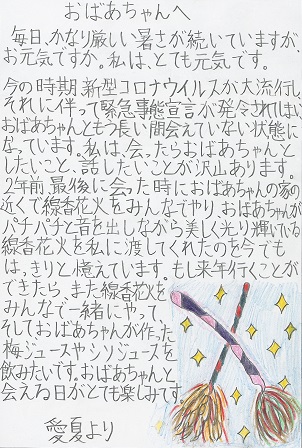 おばあちゃんへ
毎日、かなり厳しい暑さが続いていますが、
お元気ですか。私は、とても元気です。
今の時期、新型コロナウイルスが大流行し、
それに伴って緊急事態宣言が発令されてしまい、
おばあちゃんともう長い間会えていない状態に
なっています。私は、会ったらおばあちゃんと
したいこと、話したいことが沢山あります。
2年前、最後に会った時におばあちゃんの家の
近くで線香花火をみんなでやり、おばあちゃんが
パチパチと音を出しながら美しく光り輝いている
線香花火を私に渡してくれたのを今でも
は、きりと憶えています。もし来年行くことが
できたら、また線香花火を
みんなで一緒にやって
そしておばあちゃんが作った
梅ジュースやシソジュースを
飲みたいです。おばあちゃんと
会える日がとても楽しみです。
愛夏より